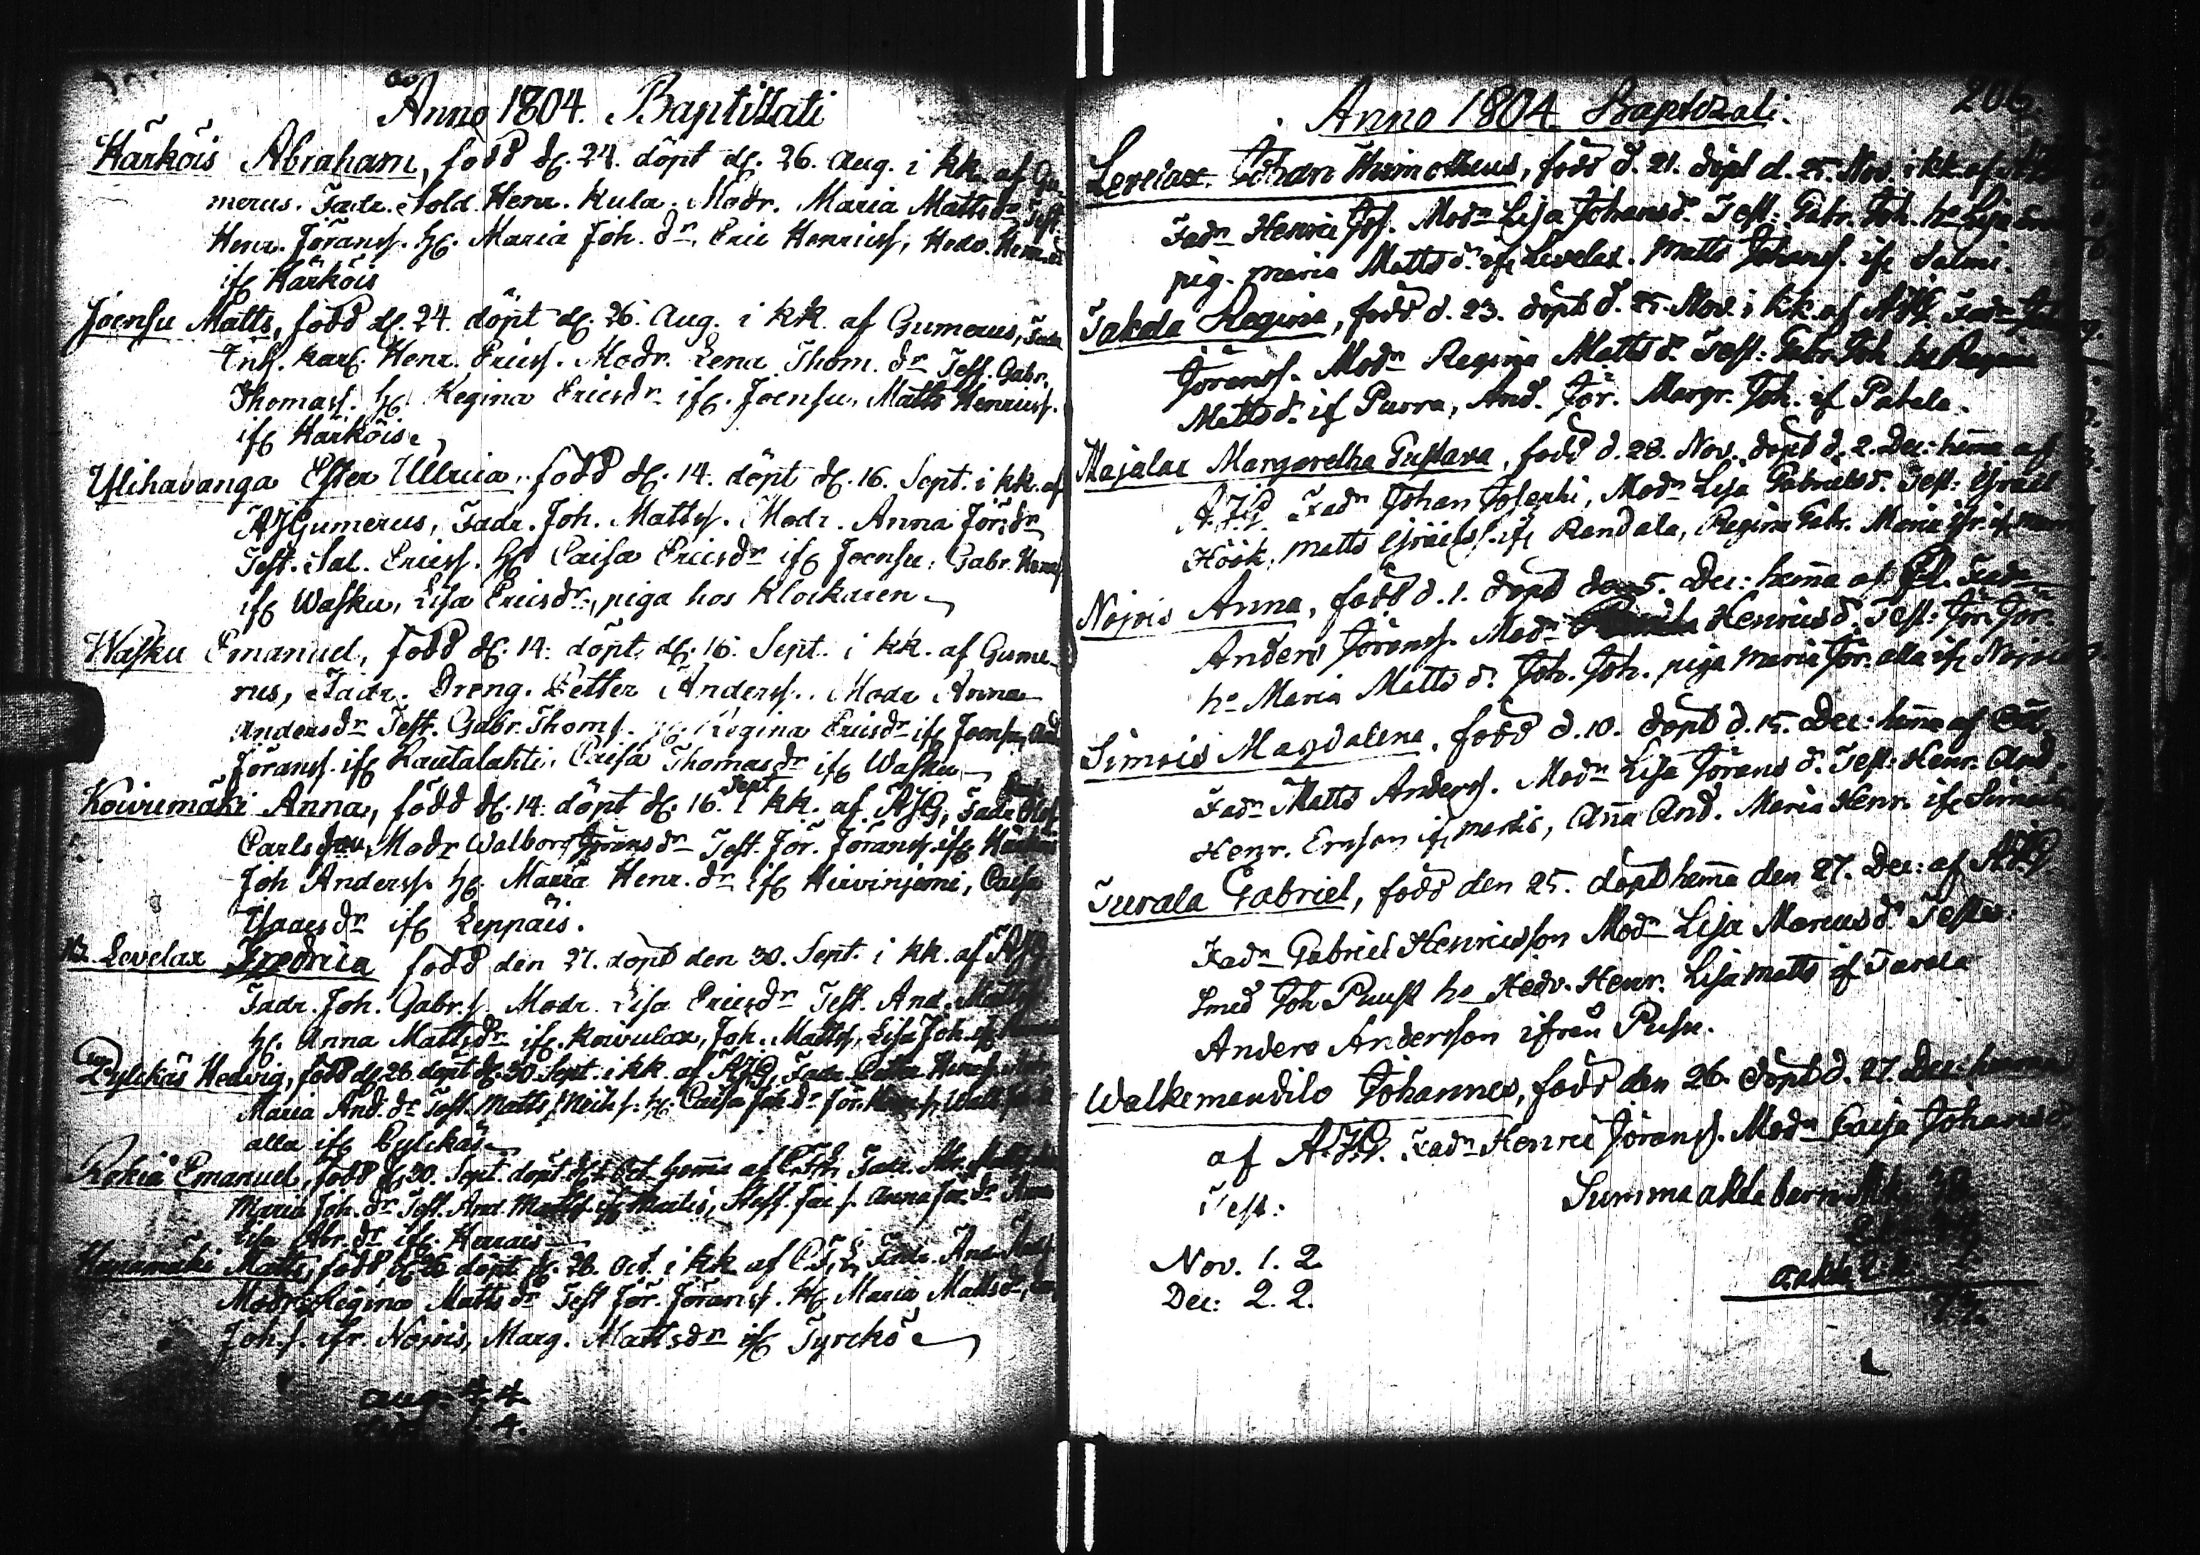 Anno 1804. Baptizati
Härköis Abraham, född d. 24. döpt d. 26. Aug. i kk. af Gu
merus. Fadr. Sold. Henr. Kula. Modr. Maria Mattsdr Test.
Henr. Joranss. h. Maria Joh. dr. Eric Henricss, Hedv. Henr. d
ifr Härköis
Joensu Matts, född d. 24. döpt d. 26. Aug. i kk. af Gumerus, Fadr
Inh. karl. Henr. Ericss. Modr. Lena Thom. dr Test. Gabr.
Thomass. h. Regina Ericsdr ifr. Joensu, Matts Henricss.
ifr Härköis
Ylihavanga Ester Ullrica, född d. 14. döpt d. 16. Sept. i kk. af
AJGumerus, Fadr. Joh. Mattss. Modr. Anna Jör. dr
Test. Sal. Ericss. h. Caisa Ericsdr ifr Joensu, Gabr. Henr
ifr Wasku, Lisa Ericsdr, piga hos Klockaren
Wasku Emanuel, född d. 14. döpt d. 16. Sept. i kk. af Gume-
rus, Fadr. Dreng. Petter Anderss. Modr Anna
Andersdr Test. Gabr. Thoms. h. Regina Ericsdr ifr Joensu, And
Joranss. ifr Rautalahti, Caisa Thomasdr ifr Wasku
Koivumäki Anna, född d. 14. döpt d. 16. Sept i kk. af AJG, Fadr
Carlsson Modr Walborg Joransdr Test. Jör. Joranss. ifr Härköis
Joh Anderss. h. Maria Henr. dr ifr Hirvinjemi, Caisa
Isaacsdr ifr Leppäis.
Levelax Fredrica född den 27. döpt den 30. Sept. i kk. af AJG
Fadr. Joh. Gabr. s. Modr. Lisa Ericsdr Test. And. Mattss
h. Anna Mattsdr ifr. Koivulax, Joh. Mattss, Lisa Joh. ifr
Pylckäs Hedvig, född d. 28. döpt d. 30 Sept. i kk. af AJG, Fadr Petter Henrss.
Maria And. dr Test. Matts Mich s. h. Caisa Joh dr Jör. Henr s.
alla ifr Pylckäs
Rokia Emanuel, född d. 30. Sept. döpt d. Oct. hema af Fadr. Abr.
Maria Joh. dr Test. And. Mattss ifr Martis, Steff. Jac s. Anna Jac. dr
Lisa Abr. dr ifr. Herrais
Hanamäki Matts, född d. 26 döpt d. 28. Oct. i kk af Fadr. And.
Modr Regina Mattsdr Test Jör. Joranss. h. Maria Mattsdr,
Joh. s. ifr. Nojois, Marg. Mattsdr ifr Tyrckö
Aug. 4.4.
4.
Anno 1804 Baptizati. 206.
Levelax Johan Thimotheus, född d. 21. döpt d. 25. Nov. i kk. af
Fadr Henric Jos. Modr Lisa Johansd. Test: Gabr. Joh. ho Lisa
pig. Maria Mattsd. ifr Levelax. Matts Johans. ifr Salmi.
Regina, född d. 23. döpt d. 25. Nov. i kk. af AJG. Fadr
Joranss. Modr Regina Mattsd. Test: Gabr. Joh. ho Regina
Mattsd. if Purra, And. Jör. Margr. Joh. if Pakala.
Majalax Margaretha Gustava, född d. 28. Nov. döpt d. 2. Dec: hema af
A.J.G. Fadr Johan Josephi, Modr Lisa Gabrielsd. Test: Israel
Höök, Matts Israelss. ifr Randala, Regina Gabr. Maria Isr. ifr
Nojois Anna, född d. 1. döpt den 5. Dec: hema af Fadr
Anders Joranss. Modr Henricsd. Test: Jör. Jör.
ho Maria Matts d. Joh. Joh. piga Maria Jör. alla ifr Nojois
Simois Magdalena, född d. 10. döpt d. 15. Dec: hema af
Fadr Matts Anderss. Modr Lisa Jörans d. Test: Henr. And.
Henr. Ersson ifr Martis, Anna And. Maria Henr. ifr
Turala Gabriel, född den 25. döpt hema den 27. Dec: af A.J.G.
Fadr Gabriel Henricsson Modr Lisa Marcusd. Testes:
Smed Joh Puust ho Hedv. Henr. Lisa Matts if Turala
Anders Andersson ifrån Pusu.
Walkemandilo Johannes, född den 26. döpt d. 27. Dec: hema
af A.J.G. Fadr Henric Joranss. Modr Caisa Johansd.
Test:
Summa äkta barn 38
Nov. 1. 2.
Dec: 2. 2.